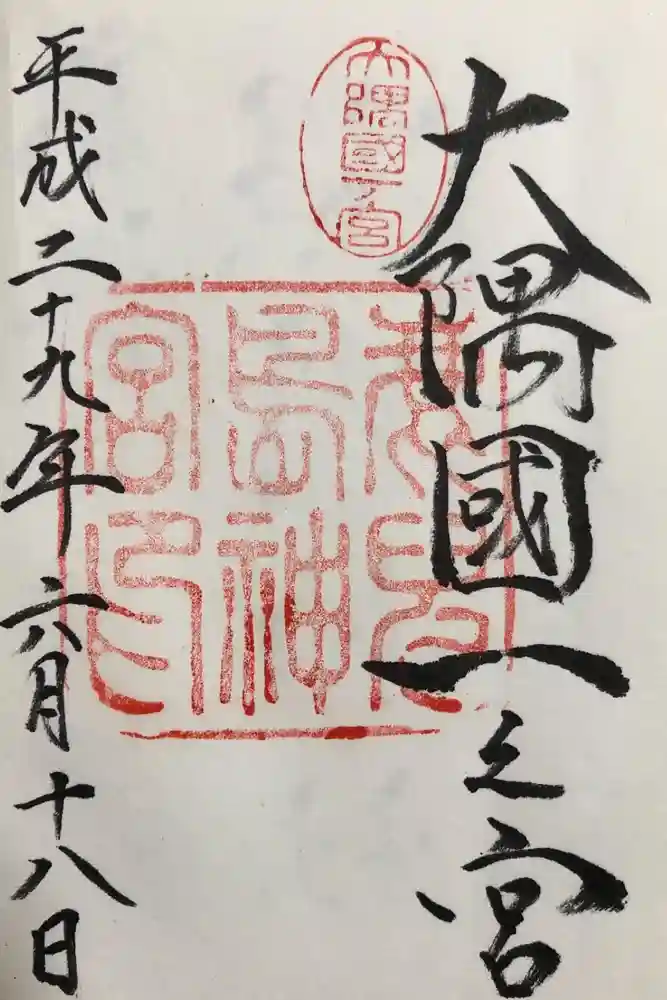 大隅國一之宮
大隅國一宮
鹿兒
島神
宮印
平成二十九年六月十八日